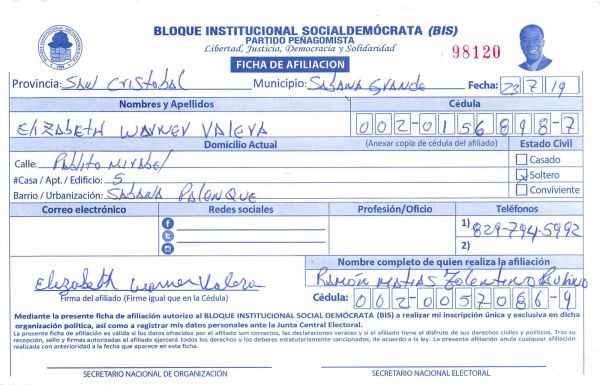 BLOQUE INSTITUCIONAL SOCIALDEMÓCRATA (BIS)
PARTIDO PEÑAGOMISTA
Libertad, Justicia, Democracia y Solidaridad
FICHA DE AFILIACION
98120
Provincia: SAN CRISTOBAL Municipio: SABANA GRANDE Fecha: 23/7/19
Nombres y Apellidos Cédula
ELIZABETH WARNER VALERA 002-0156898-7
Domicilio Actual (Anexar copia de cédula del afiliado) Estado Civil
Calle: PABLITO MIRABEL
Casado
#Casa / Apt. / Edificio: 5
Soltero
Barrio / Urbanización: SABANA PALENQUE
Conviviente
Correo electrónico Redes sociales Profesión/Oficio Teléfonos
1) 829-794-5992
2)
Nombre completo de quien realiza la afiliación
Elizabeth Warner Valera Ramón Matias Tolentino
Firma del afiliado (Firme igual que en la Cédula) Cédula: 002-0057086-9
Mediante la presente ficha de afiliación autorizo al BLOQUE INSTITUCIONAL SOCIAL DEMÓCRATA (BIS) a realizar mi inscripción única y exclusiva en dicha
organización política, así como a registrar mis datos personales ante la Junta Central Electoral.
La presente ficha de afiliación es válida si los datos ofrecidos por el afiliado son correctos, las declaraciones veraces y si el afiliado tiene el disfrute de sus derechos civiles y políticos. Tras su
recepción, sello y firmas autorizadas el afiliado ejercerá todos los derechos y los deberes estatutariamente sancionados, de acuerdo a la ley. La presente afiliación anula cualquier afiliación
realizada con anterioridad a la fecha que aparece en esta ficha.
SECRETARIO NACIONAL DE ORGANIZACIÓN SECRETARIO NACIONAL ELECTORAL